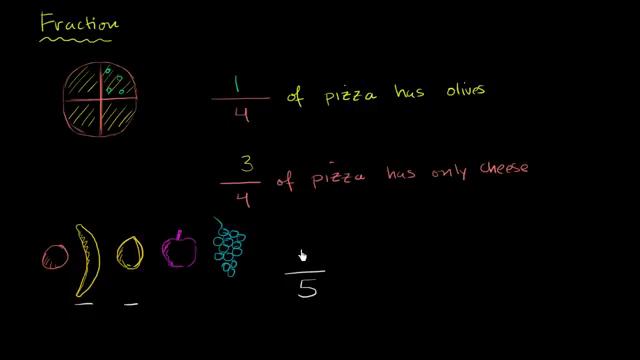 Fraction
1/4 of pizza has olives
3/4 of pizza has only cheese
/5